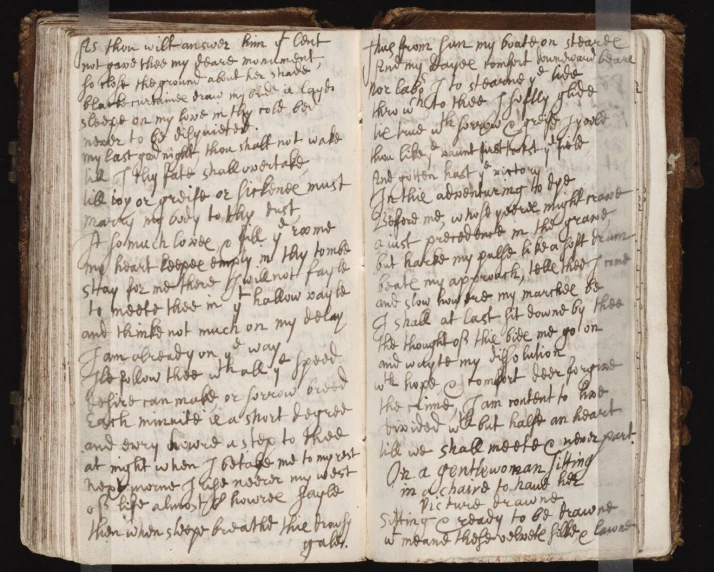 As thou wilt answer him yt lent
not gave thee my deare monument
so close the ground about her shade
blacke curtaines draw my bride is layd
sleepe on my love in thy cold bed
never to be disquieted.
my last goodnight thou shalt not wake
till I thy fate shall overtake
till or greife or sicknes must
marry my body to thy dust
It so much loves & fill ye roome
my heart keepes empty in thy tombe
stay for me there I will not fayle
to meete thee in yt hallow vayle
and thinke not much on my delay
I am already on ye way
& follow thee wth all ye speed
desire can make or sorrow breed
Each minuite is a short degree
and every howre a step to thee
at night when I betake me to my rest
next morne I rise neerer my west
of life almost howres sayle
then when sleepe breathd his drowsy
gale.
thus from sun my boate on steares
And my dayes comfort downward beare
nor labo I to steame ye tide
throw wch to thee I softly glide
tis true wth sorrow & greife I yeild
thou like ye vaunt first tookst ye feild
And gotten hast ye victory
In this adventuring to dye
Before me, whose yeeres might crave
a just precedence in the grave
but harke my pulse like a soft drum
beats my approach, tells thee I come
and slow howere my marches be
I shall at last sit downe by thee
the thought of this bids me go on
and wayte my dissolution
wth hope & comfort deer forgive
the crime, I am content to live
devided wth but halfe an heart
till we shall meete & never part.
On a gentlewoman sitting
in a chaire to have her
Picture drawne
Sitting & ready to be drawne
wt meane these velvets silks & lawne